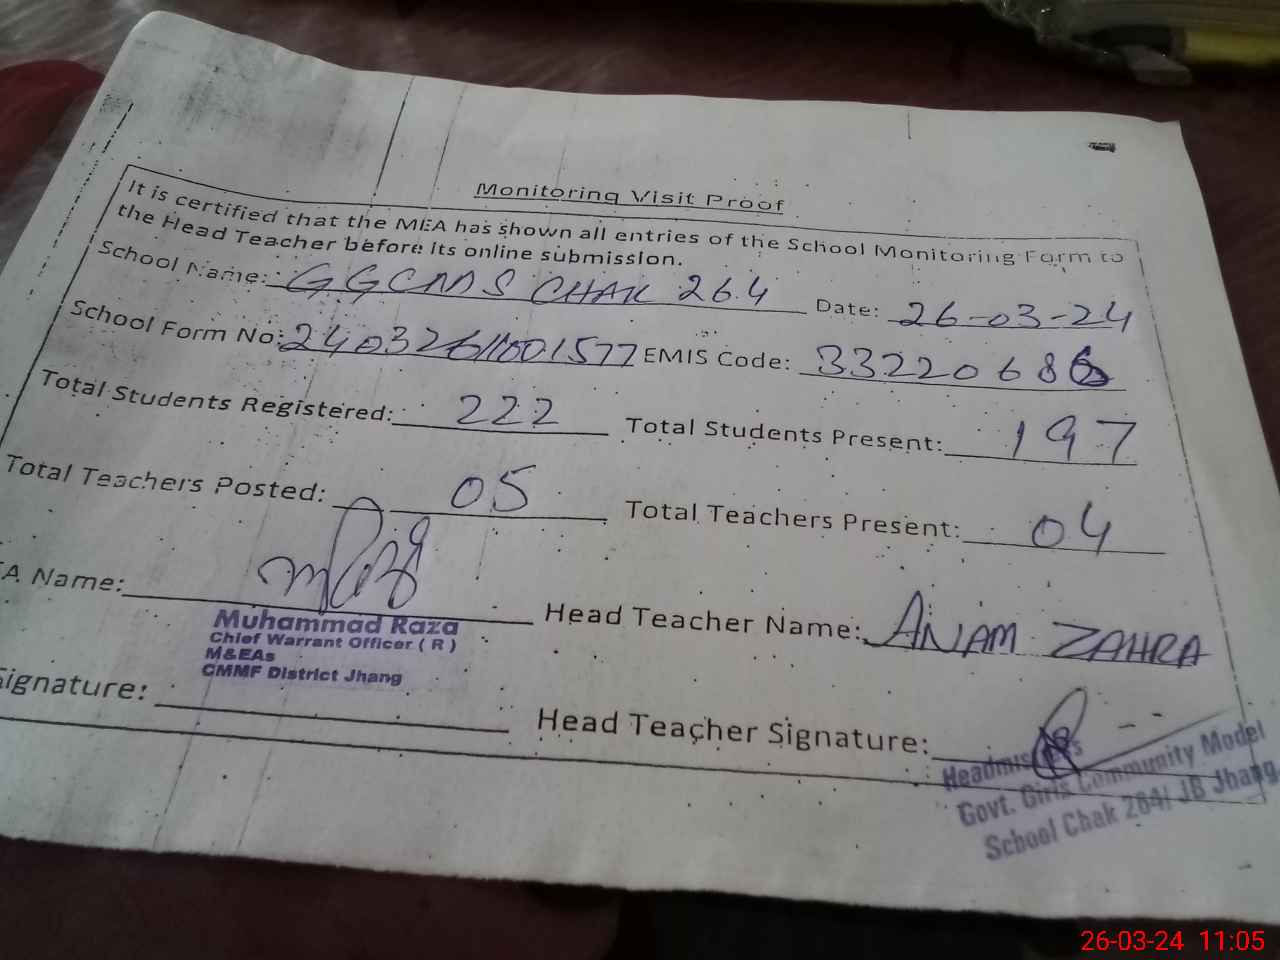 Monitoring Visit Proof
It is certified that the MEA has shown all entries of the School Monitoring Form to
the Head Teacher before its online submission.
School Name: GGCMS CHAK 264 Date: 26-03-24
School Form No: EMIS Code: 33220686
Total Students Registered: 222 Total Students Present: 197
Total Teachers Posted: 05 Total Teachers Present: 04
A Name: Head Teacher Name: ANAM ZAHRA
Muhammad Raza
Chief Warrant Officer ( R )
M&EAs
CMMF District Jhang
Signature: Head Teacher Signature:
Headmistress
Govt. Girls Community Model
School Chak 264/ JB Jhang
26-03-24 11:05